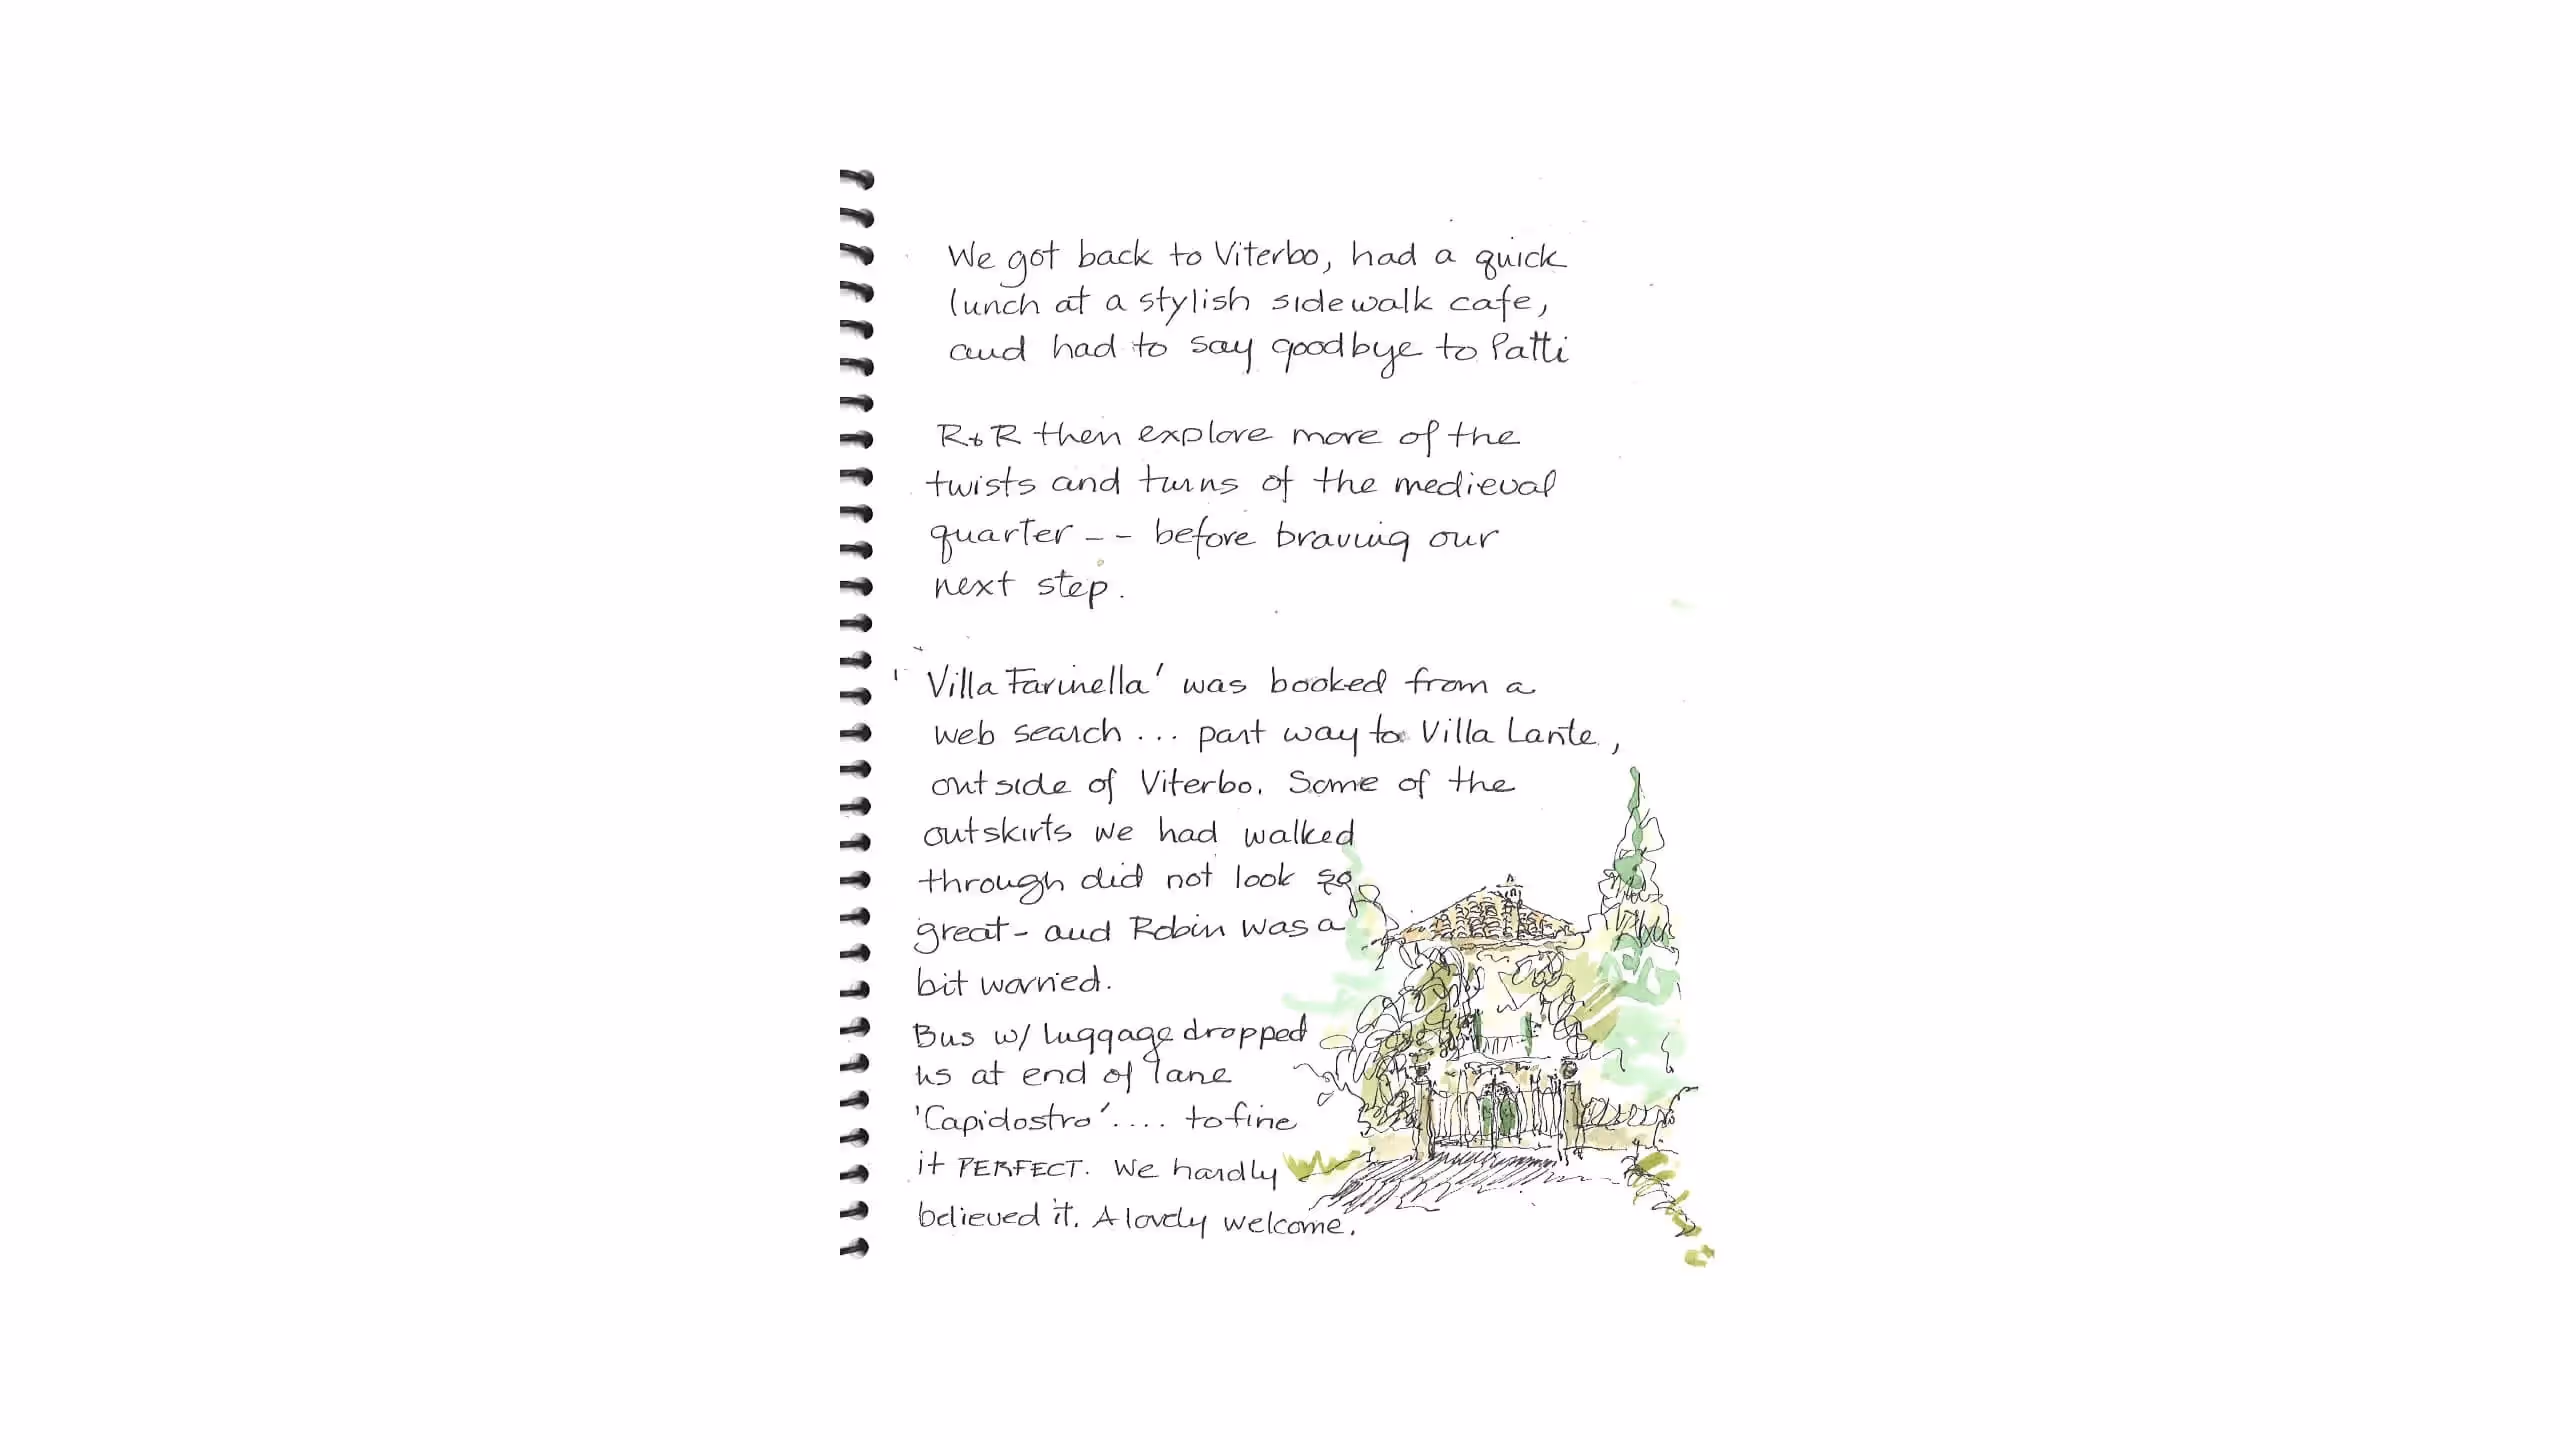 We got back to Viterbo, had a quick
lunch at a stylish sidewalk cafe,
and had to say goodbye to Patti
R & R then explore more of the
twists and turns of the medieval
quarter -- before braving our
next step.
'Villa Farinella' was booked from a
web search ... part way to Villa Lante,
outside of Viterbo. Some of the
outskirts we had walked
through did not look so
great - and Robin was a
bit worried.
Bus w/ luggage dropped
us at end of lane
'Capidostro' .... to fine
it PERFECT. We hardly
believed it. A lovely welcome.